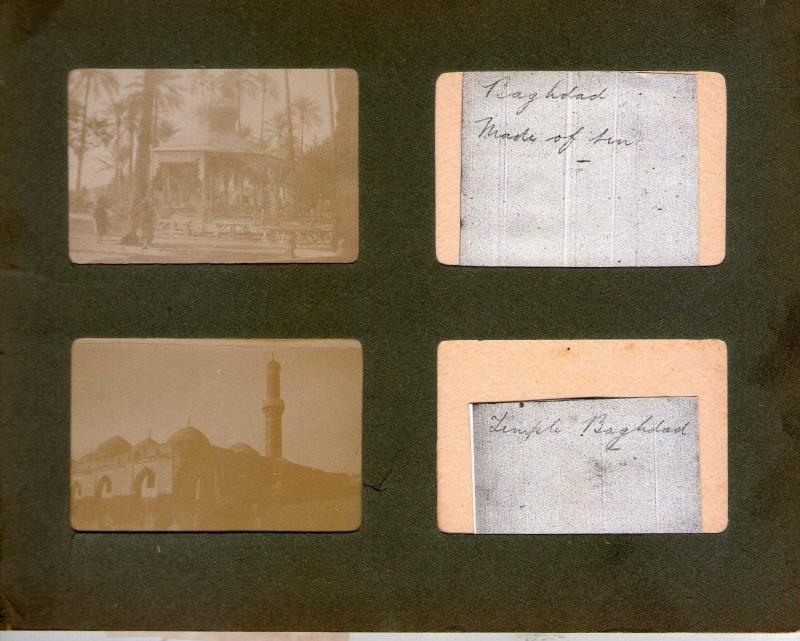 Baghdad
Made of tin
Temple Baghdad